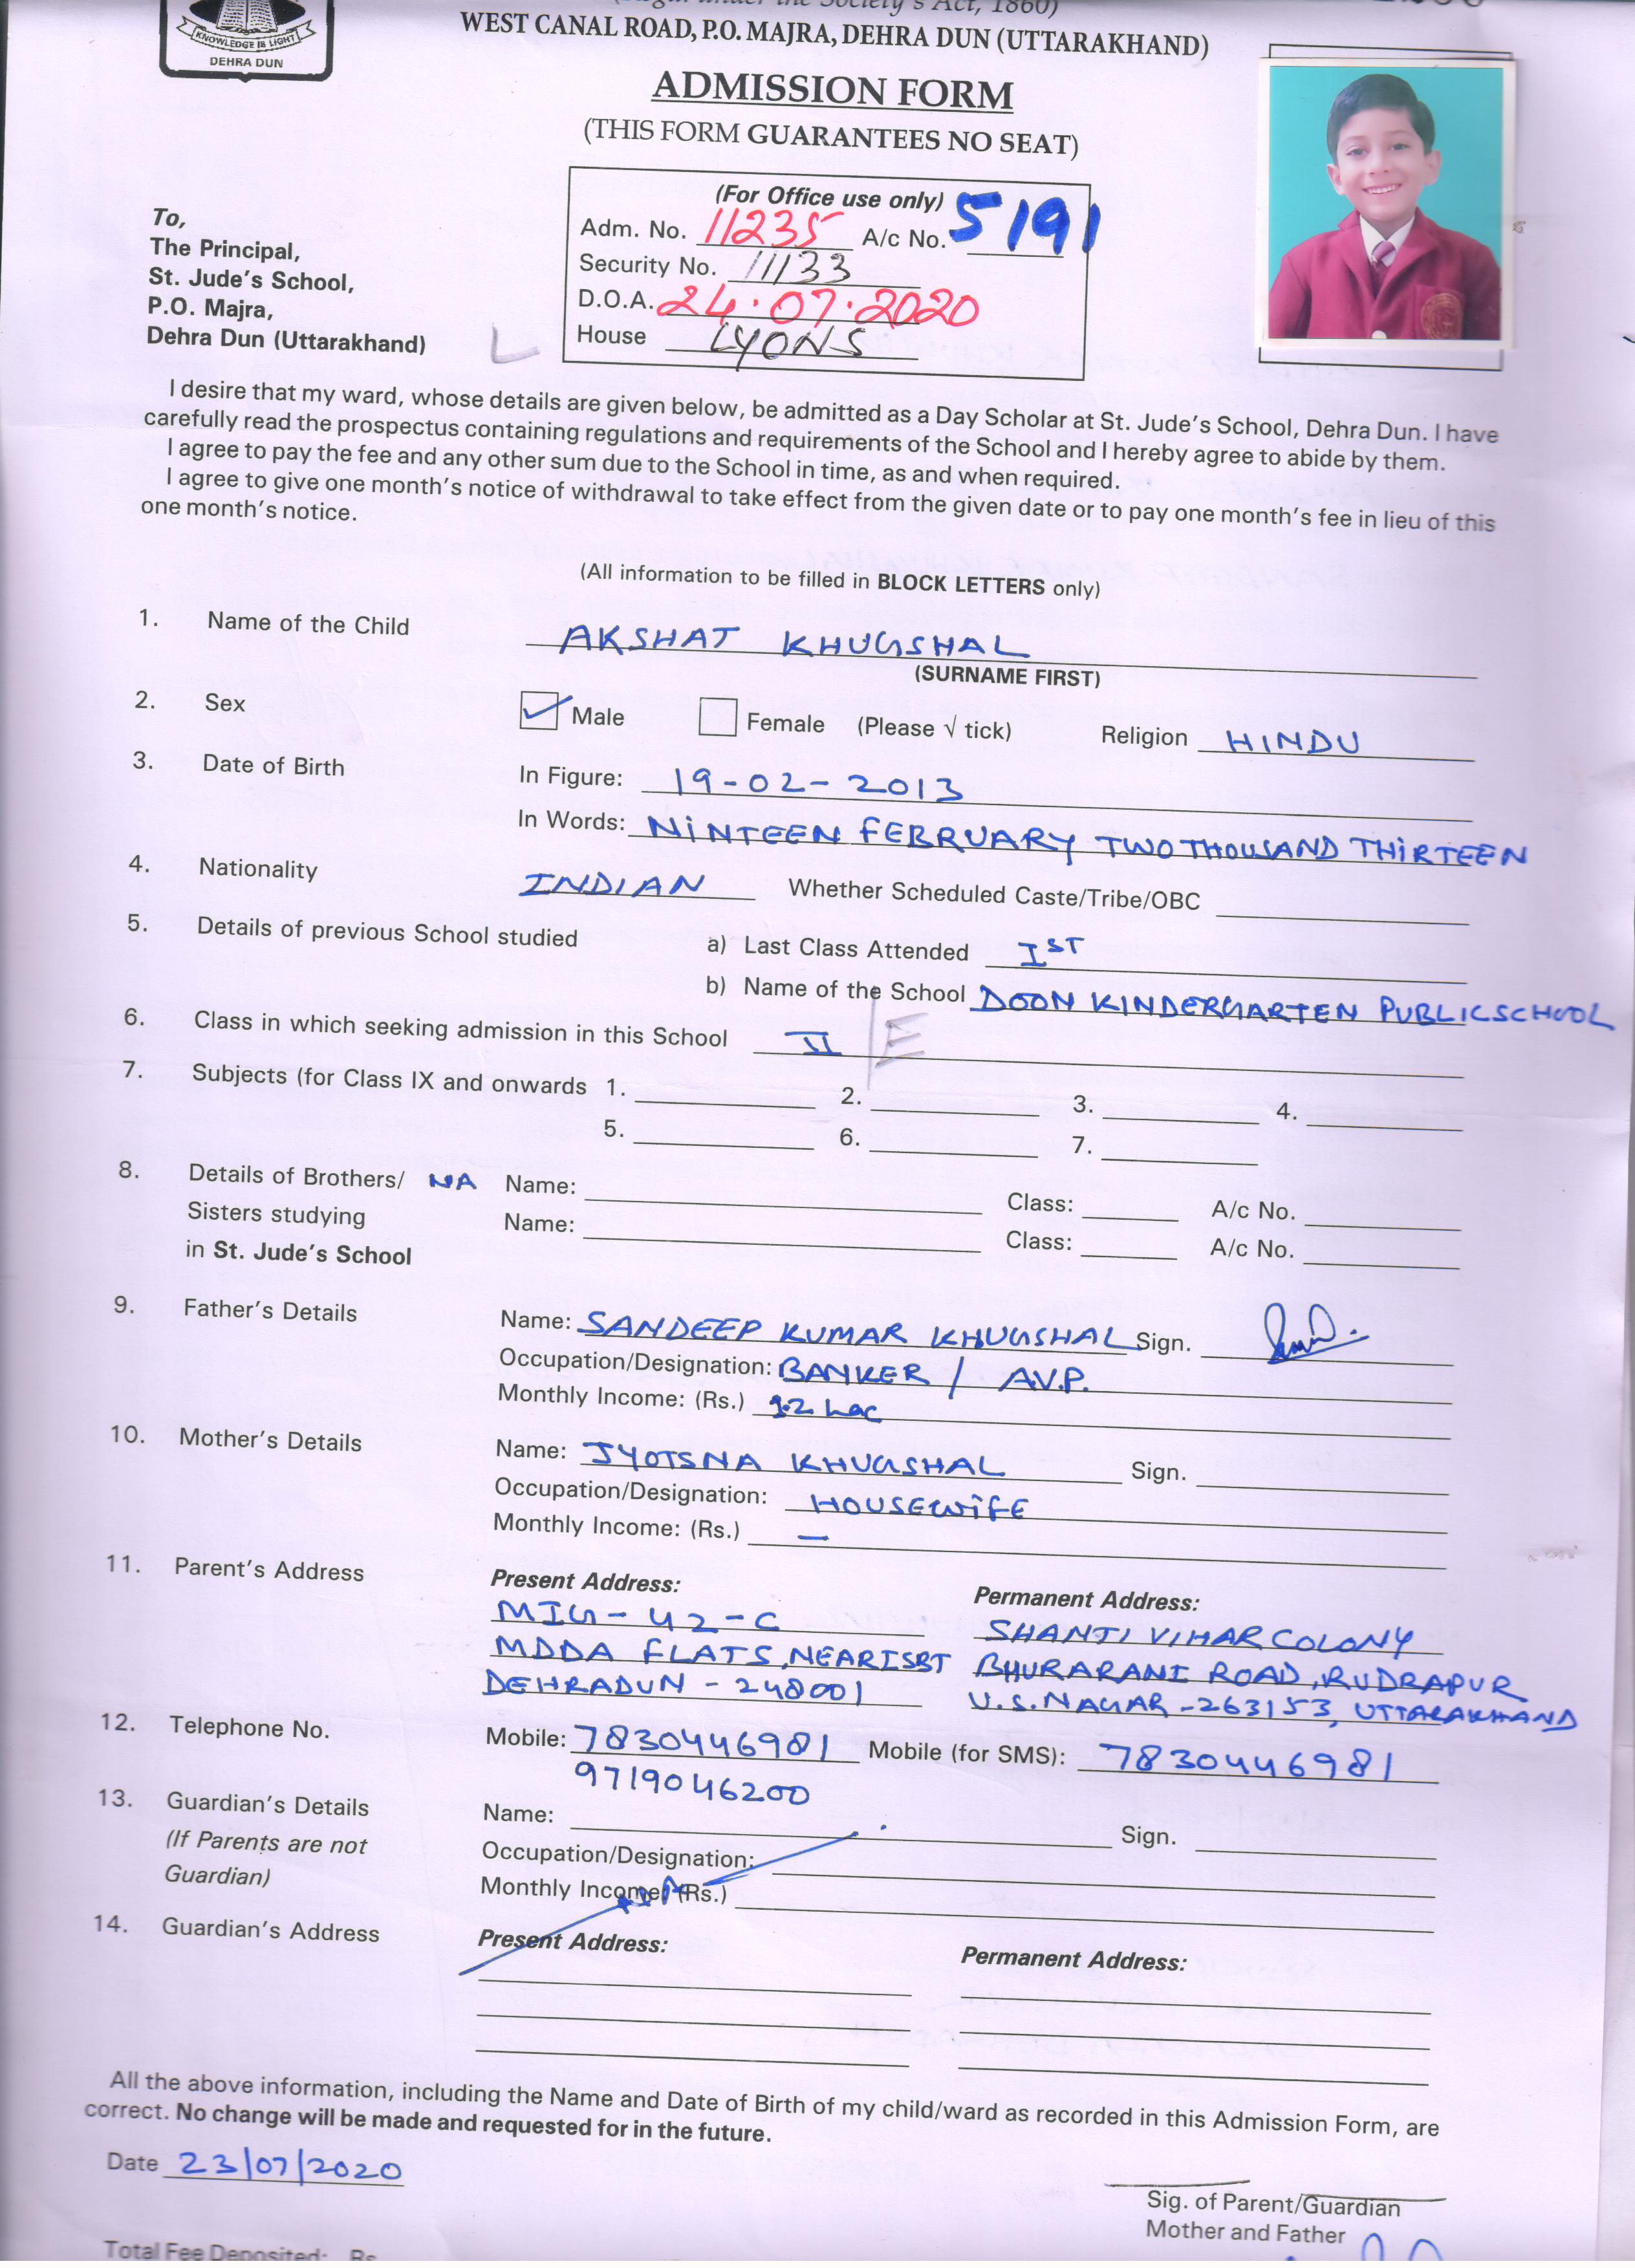 KNOWLEDGE IS LIGHT
DEHRA DUN
under the Society's Act, 1860)
WEST CANAL ROAD, P.O. MAJRA, DEHRA DUN (UTTARAKHAND)
ADMISSION FORM
(THIS FORM GUARANTEES NO SEAT)
(For Office use only)
Adm. No. 11235 A/c No. 5191
Security No. 11133
D.O.A. 24.07.2020
House LYONS
To,
The Principal,
St. Jude's School,
P.O. Majra,
Dehra Dun (Uttarakhand)
L
I desire that my ward, whose details are given below, be admitted as a Day Scholar at St. Jude's School, Dehra Dun. I have
carefully read the prospectus containing regulations and requirements of the School and I hereby agree to abide by them.
I agree to pay the fee and any other sum due to the School in time, as and when required.
I agree to give one month's notice of withdrawal to take effect from the given date or to pay one month's fee in lieu of this
one month's notice.
(All information to be filled in BLOCK LETTERS only)
1. Name of the Child AKSHAT KHUGSHAL
(SURNAME FIRST)
2. Sex Male Female (Please √ tick) Religion HINDU
3. Date of Birth In Figure: 19-02-2013
In Words: NINTEEN FEBRUARY TWO THOUSAND THIRTEEN
4. Nationality INDIAN Whether Scheduled Caste/Tribe/OBC
5. Details of previous School studied a) Last Class Attended IST
b) Name of the School DOON KINDERGARTEN PUBLIC SCHOOL
6. Class in which seeking admission in this School II E
7. Subjects (for Class IX and onwards 1. 2. 3. 4.
5. 6. 7.
8. Details of Brothers/ NA Name: Class: A/c No.
Sisters studying Name: Class: A/c No.
in St. Jude's School
9. Father's Details Name: SANDEEP KUMAR KHUGSHAL Sign.
Occupation/Designation: BANKER / A.V.P.
Monthly Income: (Rs.) Lac
10. Mother's Details Name: JYOTSNA KHUGSHAL Sign.
Occupation/Designation: HOUSEWIFE
Monthly Income: (Rs.) —
11. Parent's Address Present Address: Permanent Address:
MIG-42-C SHANTI VIHAR COLONY
MDDA FLATS, NEAR ISBT BHURARANI ROAD, RUDRAPUR
DEHRADUN - 248001 U.S. NAGAR - 263153, UTTARAKHAND
12. Telephone No. Mobile: 7830446981 Mobile (for SMS): 7830446981
9719046200
13. Guardian's Details Name: Sign.
(If Parents are not Occupation/Designation:
Guardian) Monthly Income: (Rs.)
14. Guardian's Address Present Address: Permanent Address:
All the above information, including the Name and Date of Birth of my child/ward as recorded in this Admission Form, are
correct. No change will be made and requested for in the future.
Date 23/07/2020
Sig. of Parent/Guardian
Mother and Father
Total Fee Deposited: Rs